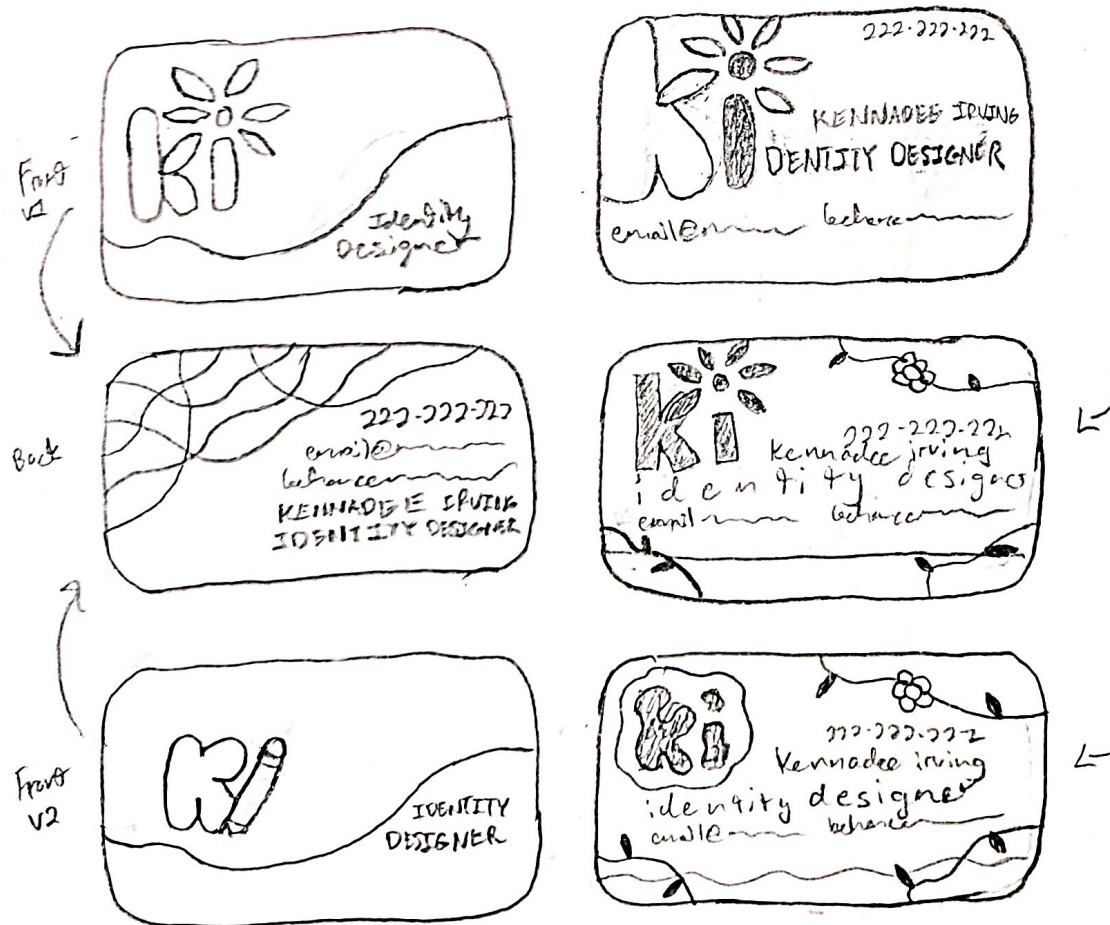 Front
v1
Ki
Identity
Designer
Back
222-222-222
email@
behance
KENNADEE IRVING
IDENTITY DESIGNER
Front
v2
Ki
IDENTITY
DESIGNER
222-222-222
Ki
KENNADEE IRVING
DENTITY DESIGNER
email@
behance
Ki
222-222-222
Kennadee irving
identity designer
email
behance
Ki
222-222-222
Kennadee irving
identity designer
email@
behance